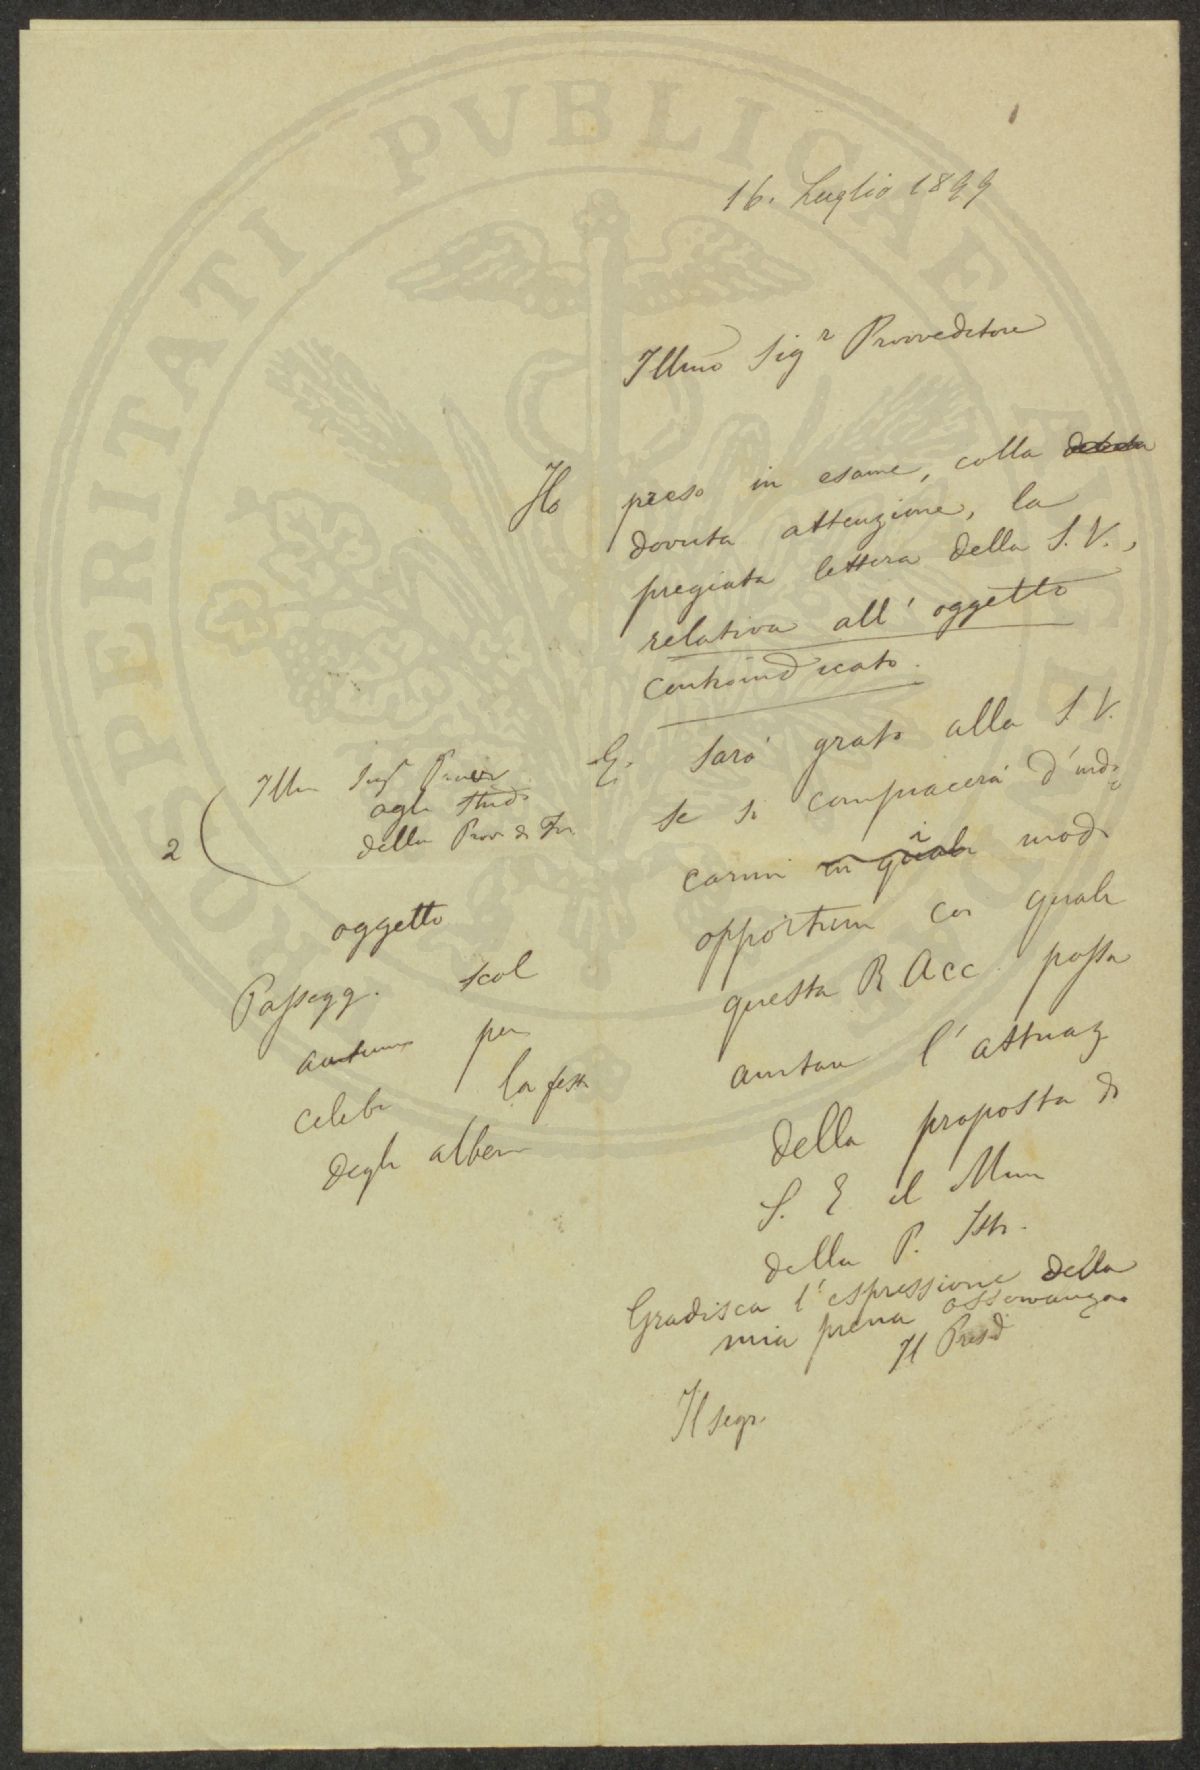 16. Luglio 1899
Illmo Sigr Provveditore
Ho preso in esame, colla debita
dovuta attenzione, la
pregiata lettera della S. V.,
relativa all' oggetto
controindicato.
E. Sarò grato alla S. V.
se si compiacerà d' indi
carmi in quali i modi
opportuni coi quali
questa R. Acc. possa
aiutare l' attuaz
della proposta di
S. E il Min
della P. Istr.
Gradisca l' espressione della
mia piena osservanza
Il Presid
Il segr.
2
Illm Sigr Provv
agli Studi
della Prov di Tor
oggetto
Passegg. scol
autunn per
celebr la festa
degli alberi
PROSPERITATI PVBLICAE